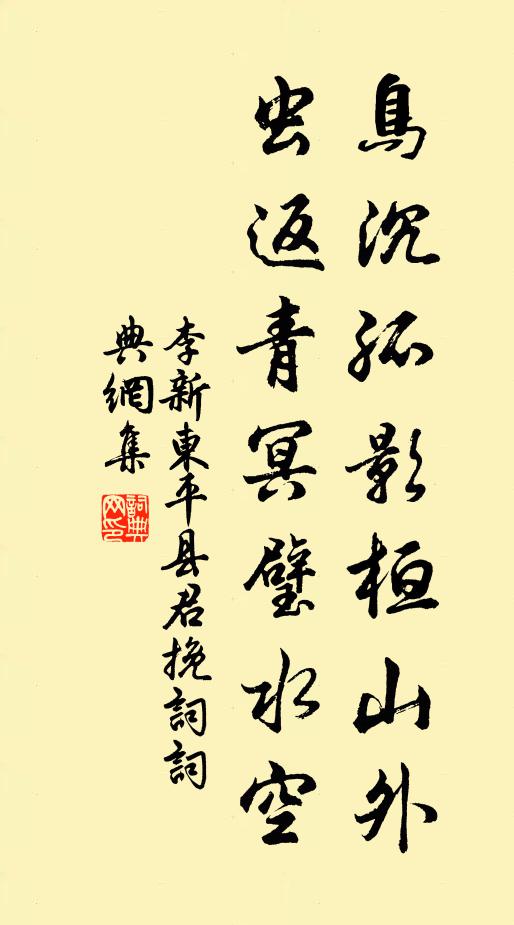 鳥沉孤影桓山外
虫返青冥璧水空
李新東平县君挽詞詞
典網集
詞典
网印